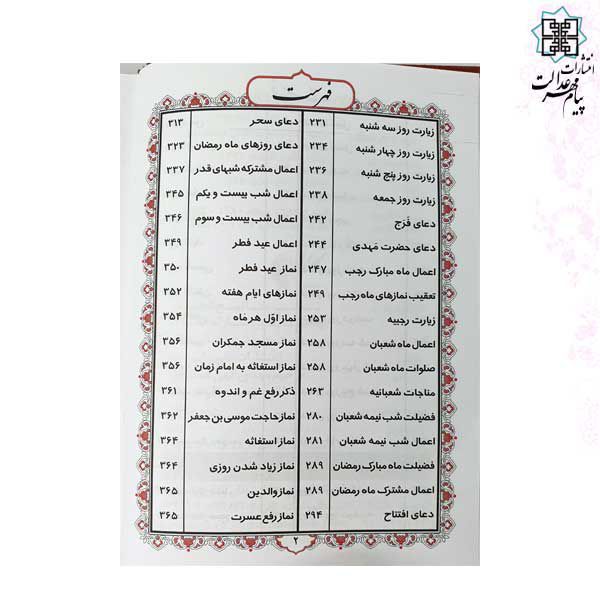 انتشارات
پیام مهر عدالت
فهرست
زیارت روز سه شنبه ۲۳۱
زیارت روز چهار شنبه ۲۳۴
زیارت روز پنج شنبه ۲۳۶
زیارت روز جمعه ۲۳۸
دعای فَرَج ۲۴۲
دعای حضرت مَهدی ۲۴۴
اعمال ماه مبارک رجب ۲۴۷
تعقیب نمازهای ماه رجب ۲۴۹
زیارت رجبیه ۲۵۳
اعمال ماه شعبان ۲۵۸
صلوات ماه شعبان ۲۵۸
مناجات شعبانیه ۲۶۳
فضیلت شب نیمه شعبان ۲۸۰
اعمال شب نیمه شعبان ۲۸۱
فضیلت ماه مبارک رمضان ۲۸۹
اعمال مشترک ماه رمضان ۲۸۹
دعای افتتاح ۲۹۴
دعای سحر ۳۱۳
دعای روزهای ماه رمضان ۳۲۳
اعمال مشترکه شبهای قدر ۳۳۷
اعمال شب بیست و یکم ۳۴۵
اعمال شب بیست و سوم ۳۴۶
اعمال عید فطر ۳۴۹
نماز عید فطر ۳۵۰
نمازهای ایام هفته ۳۵۲
نماز اوّل هر مَاه ۳۵۴
نماز مسجد جمکران ۳۵۶
نماز استغاثه به امام زمان ۳۵۶
ذکر رفع غم و اندوه ۳۶۱
نماز حاجت موسی بن جعفر ۳۶۲
نماز استغاثه ۳۶۴
نماز زیاد شدن روزی ۳۶۴
نماز والدین ۳۶۵
نماز رفع عسرت ۳۶۵
۲